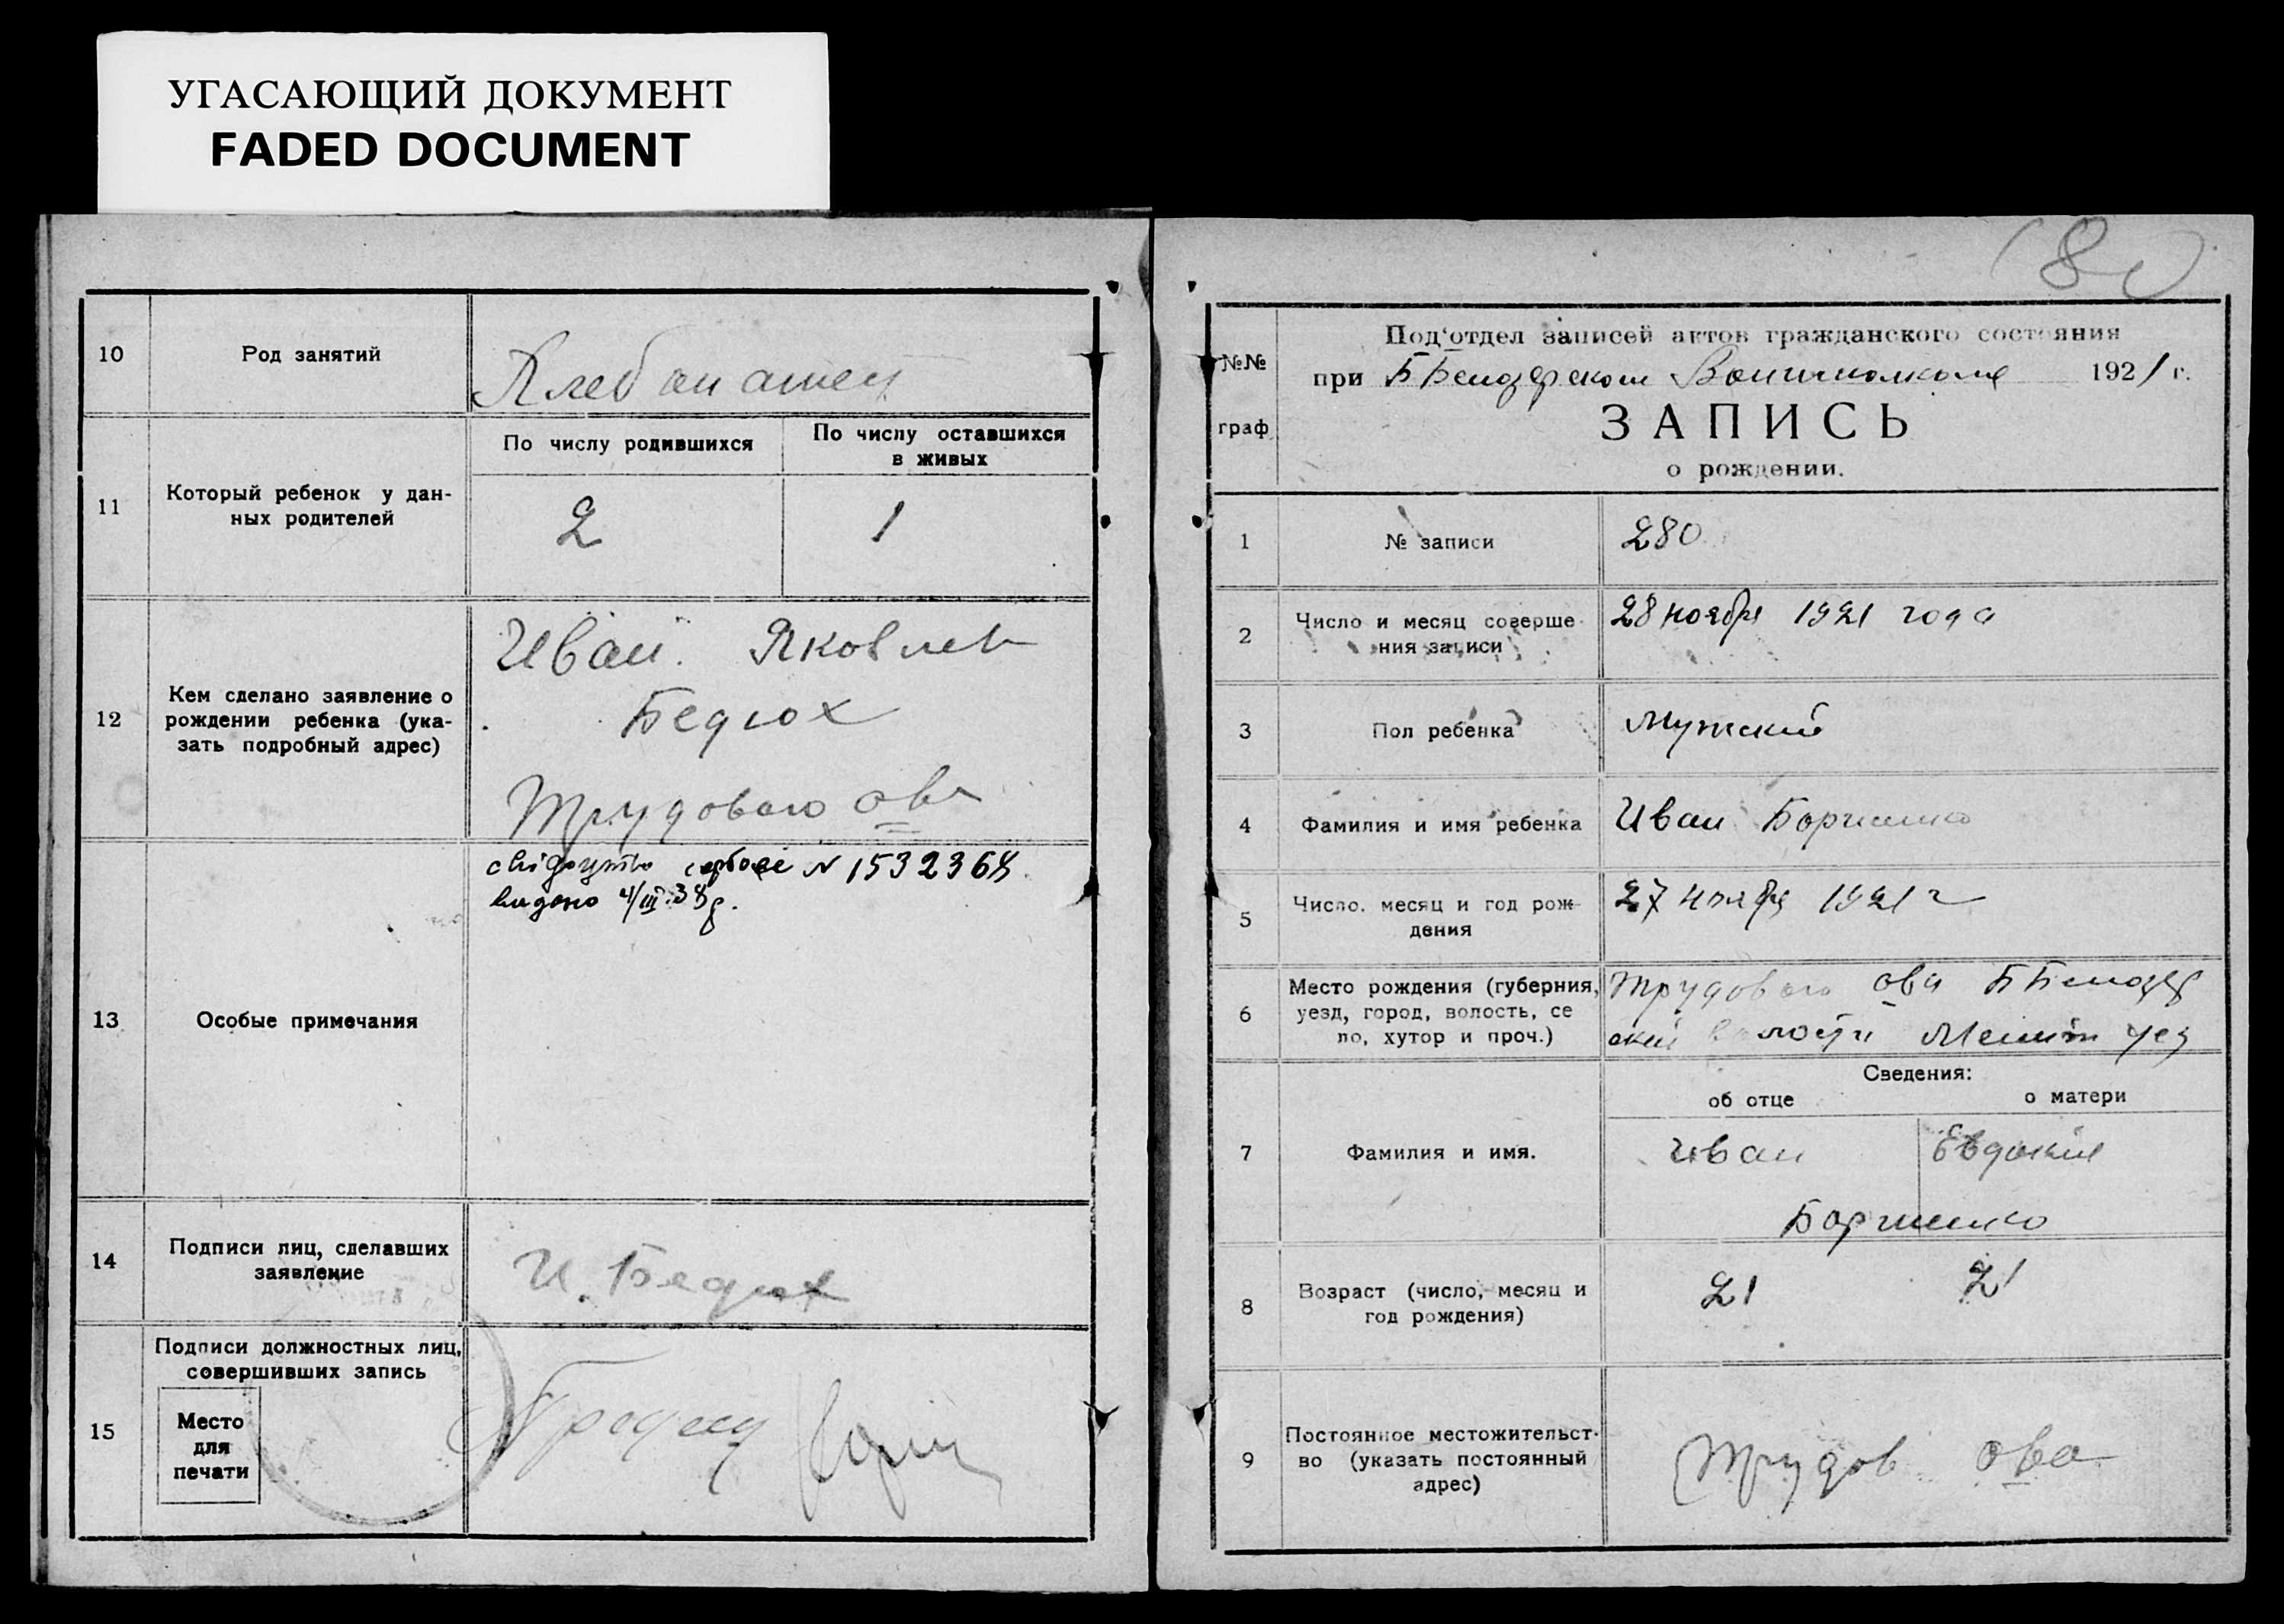 УГАСАЮЩИЙ ДОКУМЕНТ
FADED DOCUMENT
10
Род занятий
Хлебопашец
11
Который ребенок у дан-
ных родителей
По числу родившихся
По числу оставшихся
в живых
2
1
12
Кем сделано заявление о
рождении ребенка (ука-
зать подробный адрес)
Иван Яковлев
Бедюх
Трудового о-ва
13
Особые примечания
свідоцтво N 1532368
видано 4/III 38 р.
14
Подписи лиц, сделавших
заявление
И. Бедюх
15
Подписи должностных лиц,
совершивших запись
Место
для
печати
№№
граф
Под'отдел записей актов гражданского состояния
при Б Белозерском Волисполкоме 1921 г.
ЗАПИСЬ
о рождении.
1
№ записи
280
2
Число и месяц соверше-
ния записи
28 ноября 1921 года
3
Пол ребенка
Мужский
4
Фамилия и имя ребенка
Иван
5
Число, месяц и год рож-
дения
27 ноября 1921 г
6
Место рождения (губерния,
уезд, город, волость, се
ло, хутор и проч.)
Трудового о-ва Б Белозер
ской волости Мелит уез
Сведения:
об отце
о матери
7
Фамилия и имя.
Иван
Евдокия
8
Возраст (число, месяц и
год рождения)
21
21
9
Постоянное местожительст-
во (указать постоянный
адрес)
Трудов о-ва